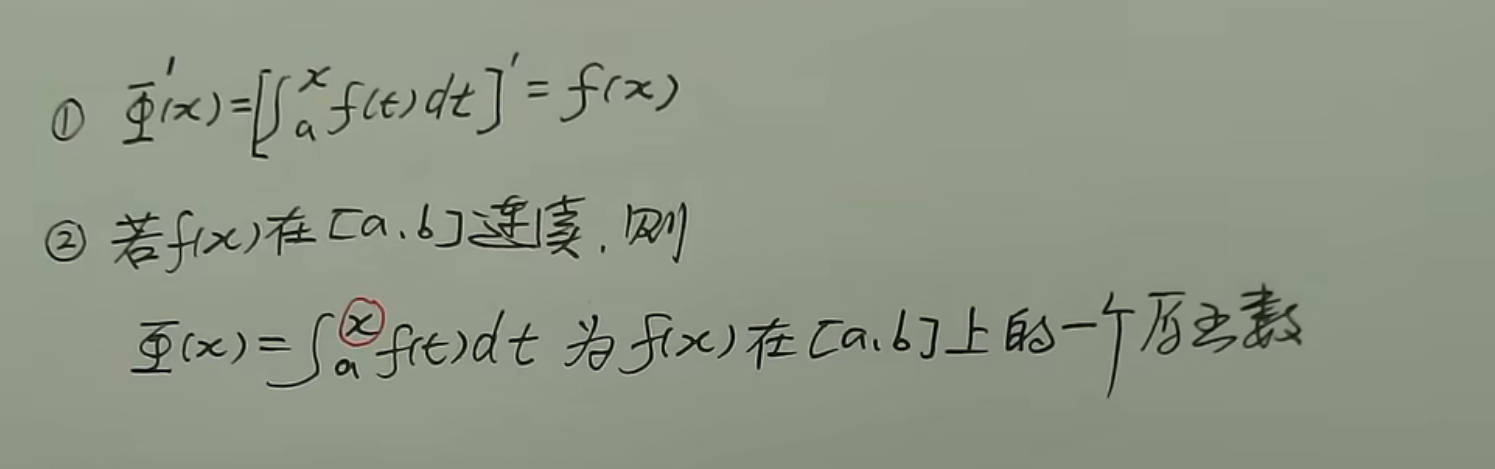 ① Φ'(x)=[∫ₐˣ f(t)dt]'=f(x)
② 若f(x)在[a,b]连续,则
Φ(x)=∫ₐˣ f(t)dt 为f(x)在[a,b]上的一个原函数